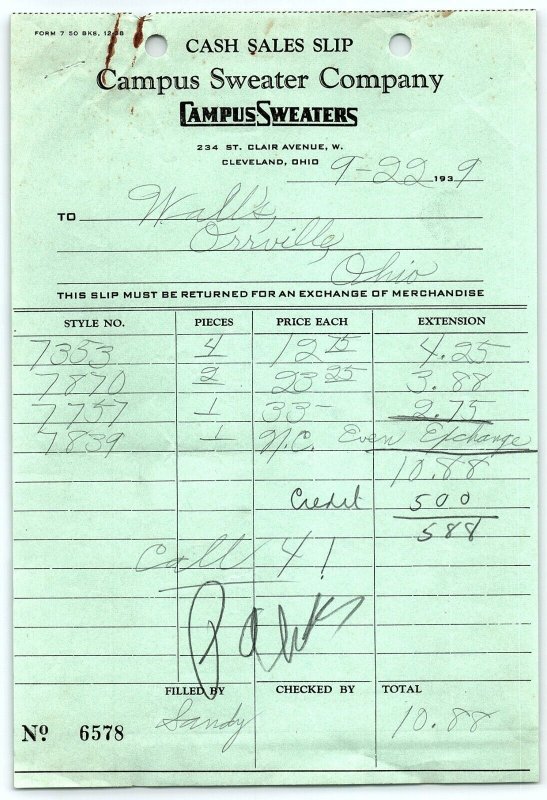 FORM 7 50 BKS. 12-38
CASH SALES SLIP
Campus Sweater Company
CAMPUS SWEATERS
234 ST. CLAIR AVENUE, W.
CLEVELAND, OHIO
9-22 1939
TO Wall's,
Orrville,
Ohio
THIS SLIP MUST BE RETURNED FOR AN EXCHANGE OF MERCHANDISE
STYLE NO. PIECES PRICE EACH EXTENSION
7353 4 12 75 4.25
7870 2 23 25 3.88
7757 1 33- 2.75
7839 1 N.C. Even Exchange
10.88
Credit 500
588
Call 4!
FILLED BY CHECKED BY TOTAL
Sandy 10.88
Nº 6578